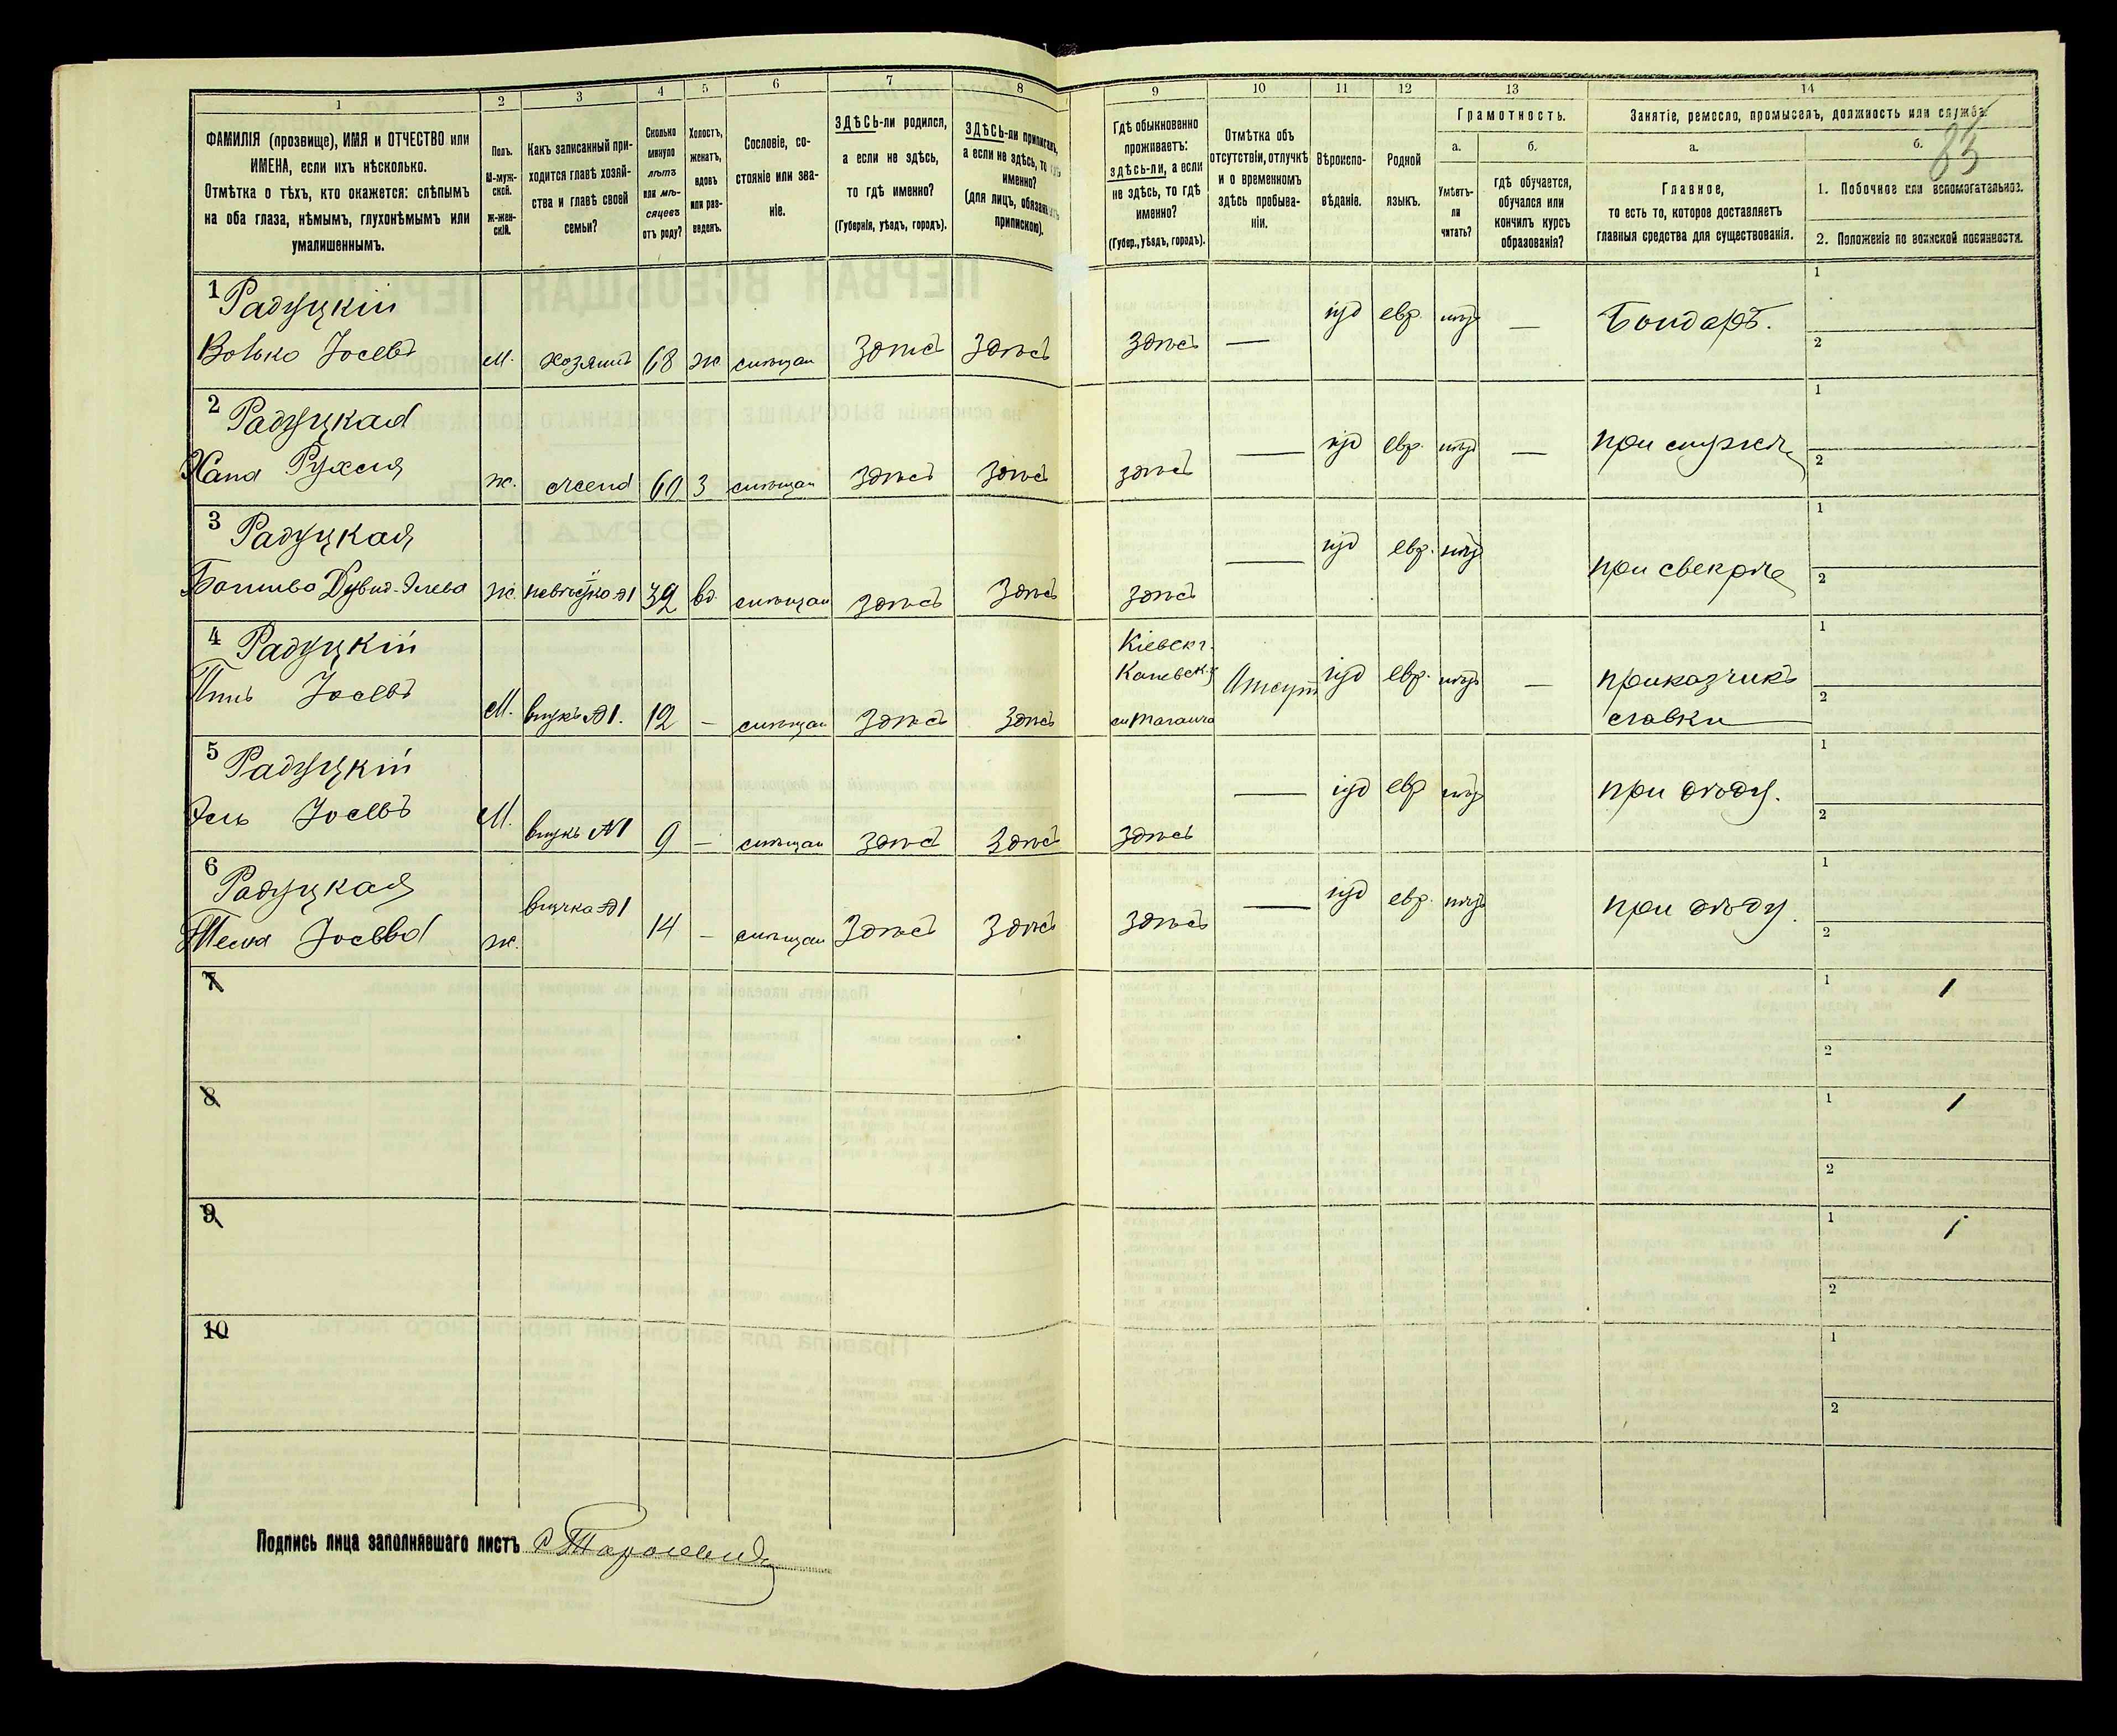 1
2
3
4
5
6
7
8
9
10
11
12
13
14
ФАМИЛІЯ (прозвище), ИМЯ и ОТЧЕСТВО или
ИМЕНА, если ихъ нѣсколько.
Отмѣтка о тѣхъ, кто окажется: слѣпымъ
на оба глаза, нѣмымъ, глухонѣмымъ или
умалишеннымъ.
Полъ.
М-муж-
ской.
Ж-жен-
скій.
Какъ записанный при-
ходится главѣ хозяй-
ства и главѣ своей
семьи?
Сколько
минуло
лѣтъ
или мѣ-
сяцевъ
отъ роду?
Холостъ,
женатъ,
вдовъ
или раз-
веденъ.
Сословіе, со-
стояніе или зва-
ніе.
ЗДѢСЬ-ли родился,
а если не здѣсь,
то гдѣ именно?
(Губернія, уѣздъ, городъ).
ЗДѢСЬ-ли приписанъ,
а если не здѣсь, то гдѣ
именно?
(для лицъ, обязанныхъ
припискою).
Гдѣ обыкновенно
проживаетъ:
здѣсь-ли, а если
не здѣсь, то гдѣ
именно?
(Губер., уѣздъ, городъ).
Отмѣтка объ
отсутствіи, отлучкѣ
и о временномъ
здѣсь пребыва-
ніи.
Вѣроиспо-
вѣданіе.
Родной
языкъ.
Грамотность.
а.
Умѣетъ-
ли
читать?
б.
гдѣ обучается,
обучался или
кончилъ курсъ
образованія?
Занятіе, ремесло, промыселъ, должность или служба.
83
а.
Главное,
то есть то, которое доставляетъ
главныя средства для существованія.
б.
1. Побочное или вспомогательное.
2. Положеніе по воинской повинности.
1 Радуцкій
Волько Іосевъ м. хозяинъ 68 ж здѣсь здѣсь здѣсь — іуд евр. — Бондарь. 1 2
2 Радуцкая
Хана Рухля ж. жена 60 З здѣсь здѣсь здѣсь — іуд евр. — при мужѣ 1 2
3 Радуцкая
Дувид-Элева ж. невѣстка №1 39 вд. здѣсь здѣсь здѣсь — іуд евр. при свекрѣ 1 2
4 Радуцкій
Іосевъ М. внукъ №1. 12 — здѣсь здѣсь Кіевск г. Каневск. у м Таганча Отсут іуд евр. — приказчикъ лавки 1 2
5 Радуцкій
Эль Іосевъ М. внукъ №1 9 — здѣсь здѣсь здѣсь — іуд евр при дѣду. 1 2
6 Радуцкая
Іосева ж. внучка №1 14 — здѣсь здѣсь здѣсь — іуд евр. при дѣду. 1 2
7 1 2
8 1 2
9 1 2
10 1 2
Подпись лица заполнявшаго листъ